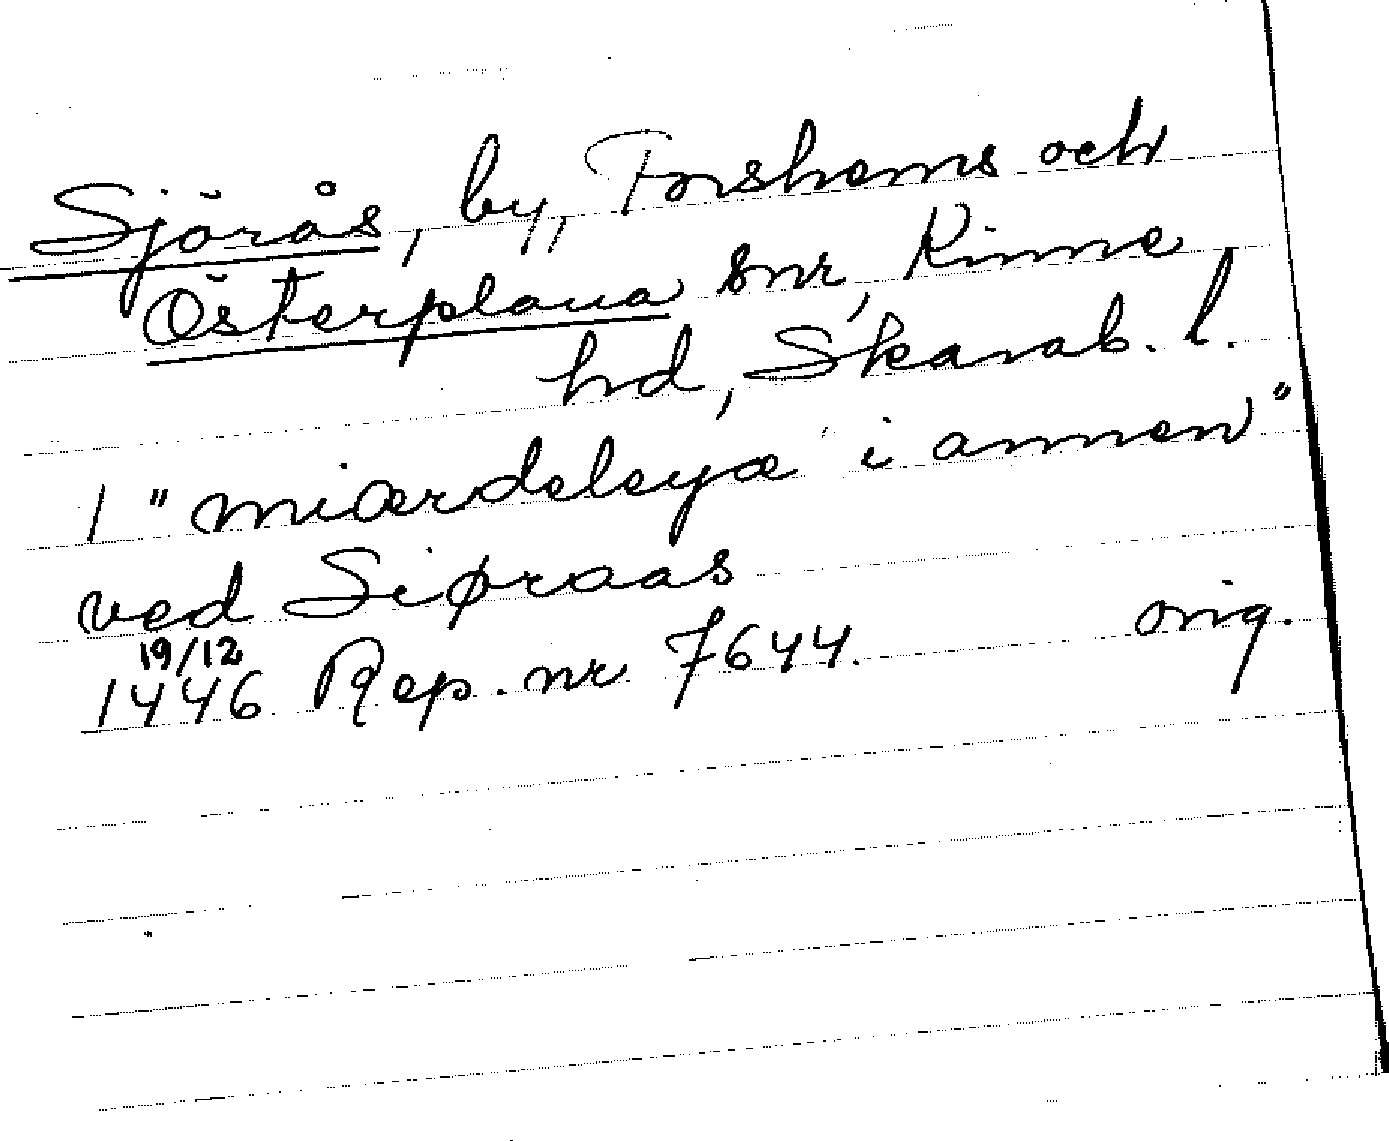 Sjörås, by, Forshems och
Österplana snr, Kinne
hd, Skarab. l.
1 "miærdeleyæ i annen"
ved Siøraas
19/12
1446 Rep. nr 7644. orig.